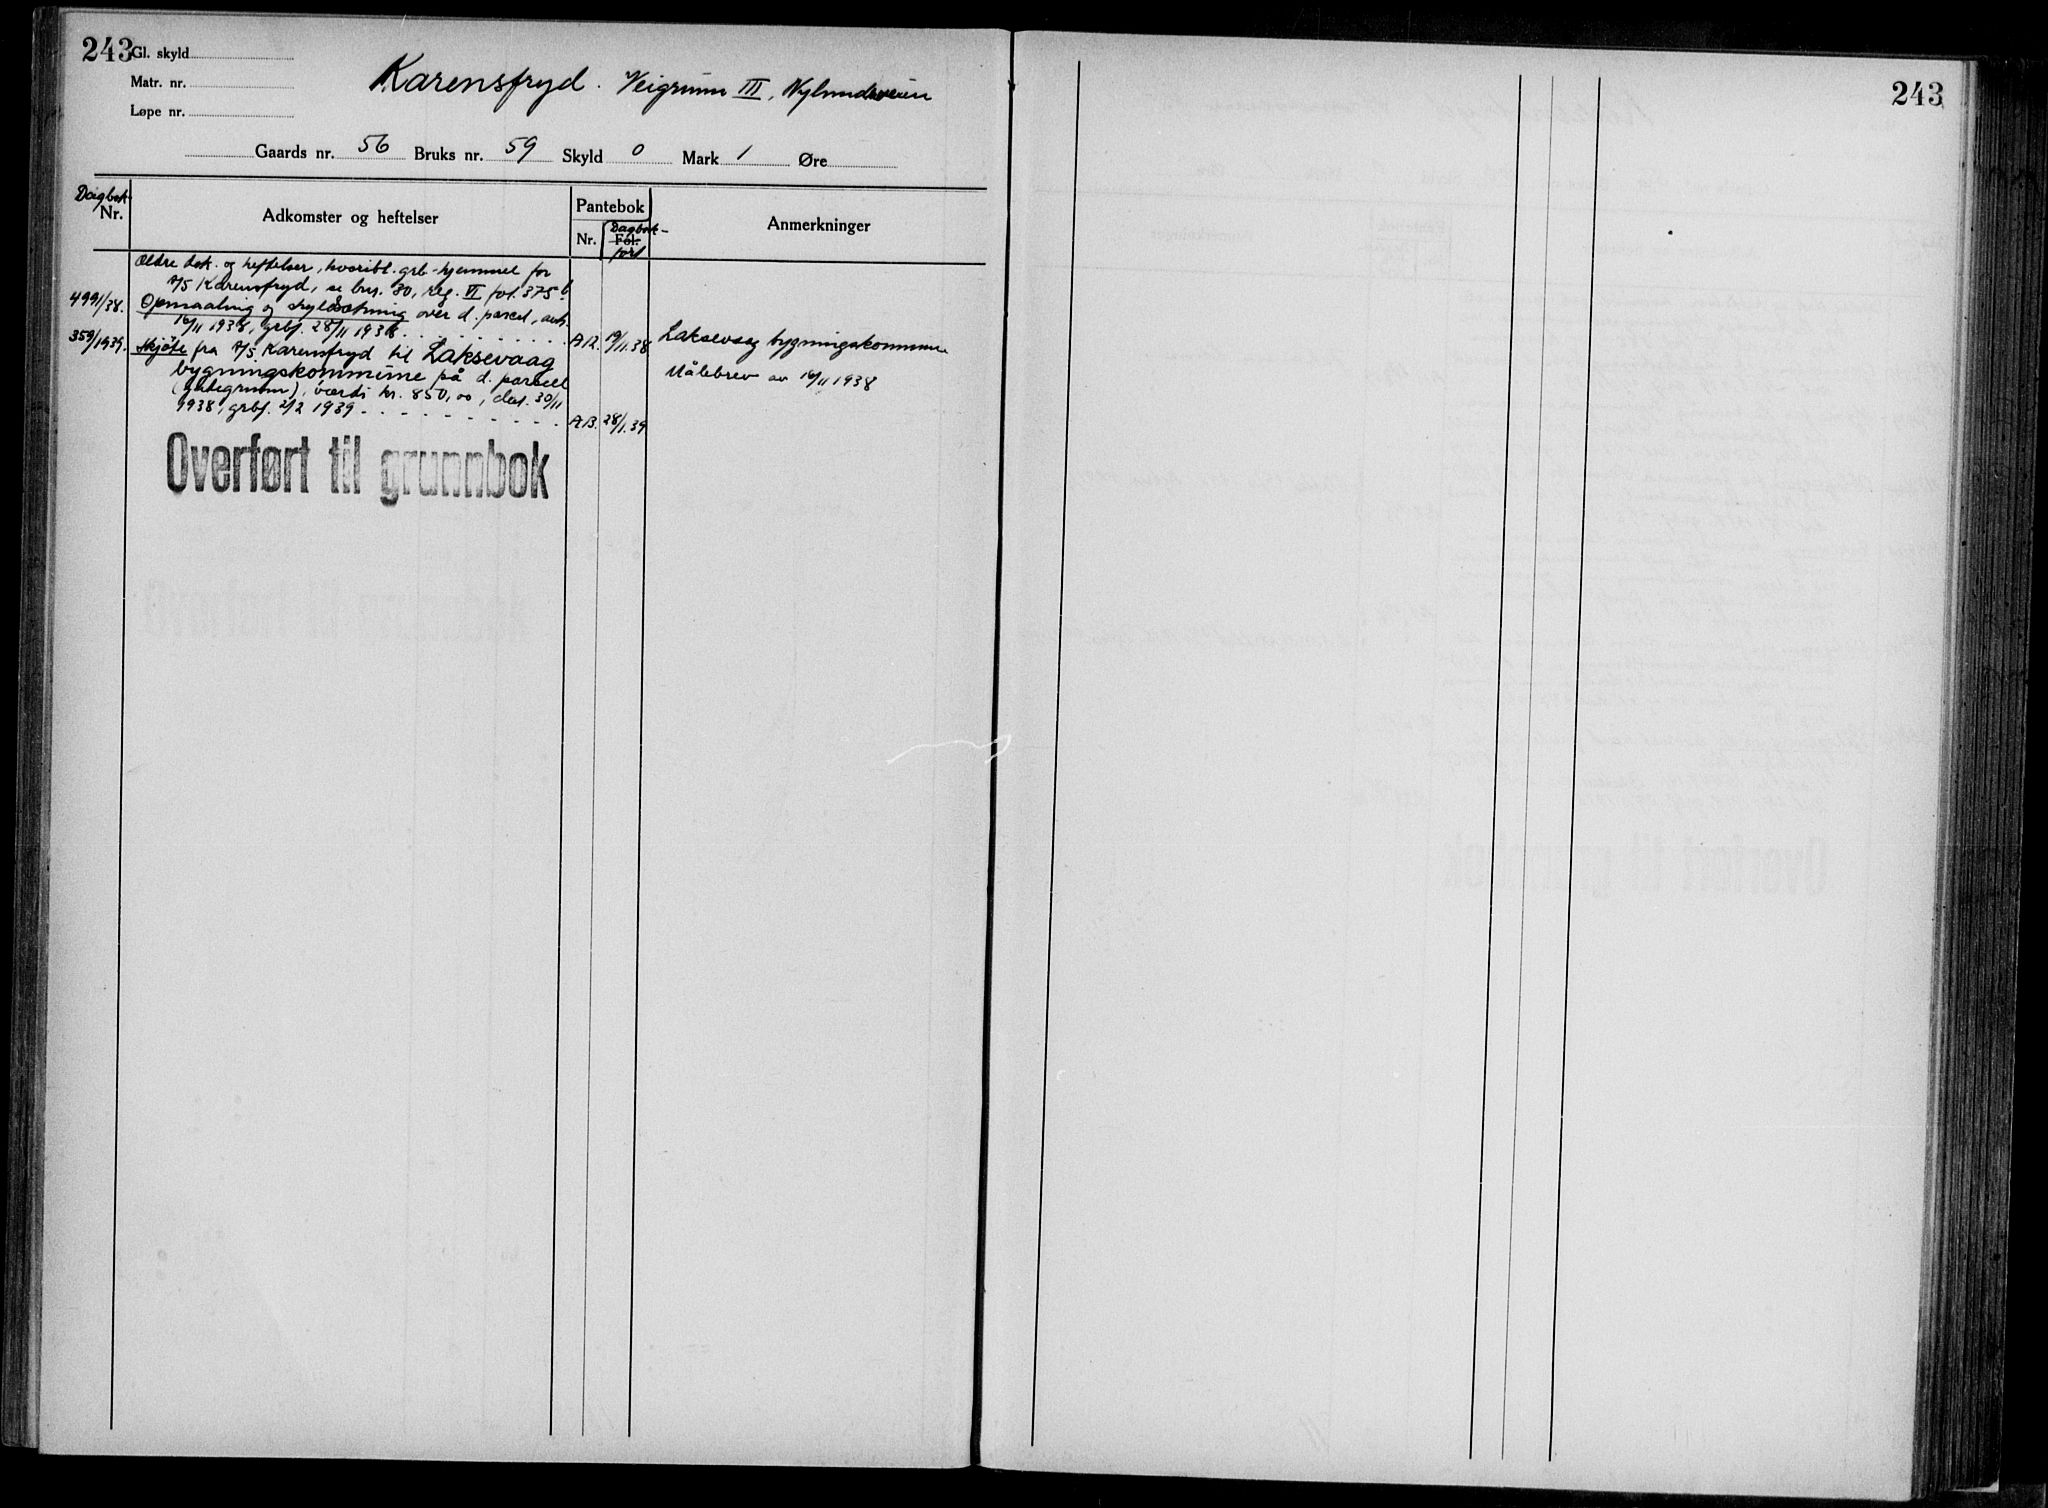 243
Gl. skyld
Matr. nr.
Løpe nr.
Karensfryd. Veigrunn III, Nylundsveien
Gaards nr. 56 Bruks nr. 59 Skyld 0 Mark 1 Øre
Dagbok-
Nr.
Adkomster og heftelser
Pantebok
Nr.
Dagbok-
Fol.
ført
Anmerkninger
Ældre dok. og heftelser, hvoribl. grb-hjemmel for
A/S Karensfryd, se brs. 30, reg. VI fol. 375 b.
4991/38. Opmaaling og skyldsætning over d. parcel, avh.
16/11 1938, grbf. 28/11 1938
A.R. 19/11.38
Laksevaag bygningskommune
359/1939. Skjøte fra A/S Karensfryd til Laksevaag
bygningskommune på d. parcel
Målebrev av 16/11 1938
(gategrunn), værdi kr. 850,00, dat. 30/11
1938, grbf. 2/2 1939
A.B. 28/1.39
Overført til grunnbok
243